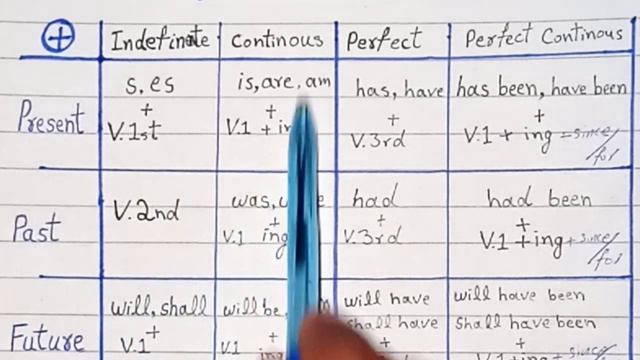 ⊕ Indefinate Continous Perfect Perfect Continous
Present
s, es
+
V.1st
is, are, am
+
V.1 + in
has, have
+
V.3rd
has been, have been
+
V.1 + ing = since/for
Past
V.2nd
was,
+
V.1 ing
had
+
V.3rd
had been
+
V.1 + ing + since/for
Future
will, shall
+
V.1
will be,
+
V.1 ing
will have
shall have
+
will have been
shall have been
+
V.1 + ing = since